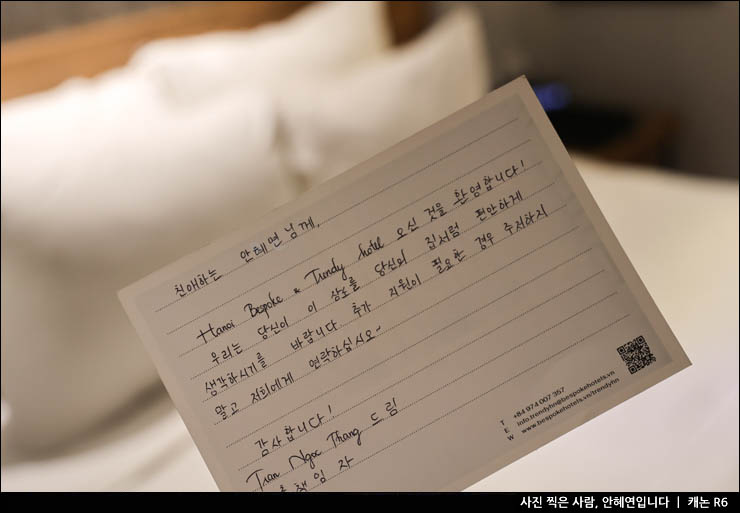 친애하는 안혜연님께,
Hanoi Bespoke & Trendy hotel 오신 것을 환영합니다!
우리는 당신이 이 상도를 당신의 집처럼 편안하게
생각하시기를 바랍니다. 추가 지원이 필요한 경우 주저하지
말고 저희에게 연락하십시오~
감사합니다!
Tran Ngoc Thang 드림
책임자
T +84 974 007 357
E info.trendyhn@bespokehotels.vn
W www.bespokehotels.vn/trendyhn
사진 찍은 사람, 안혜연입니다 | 캐논 R6